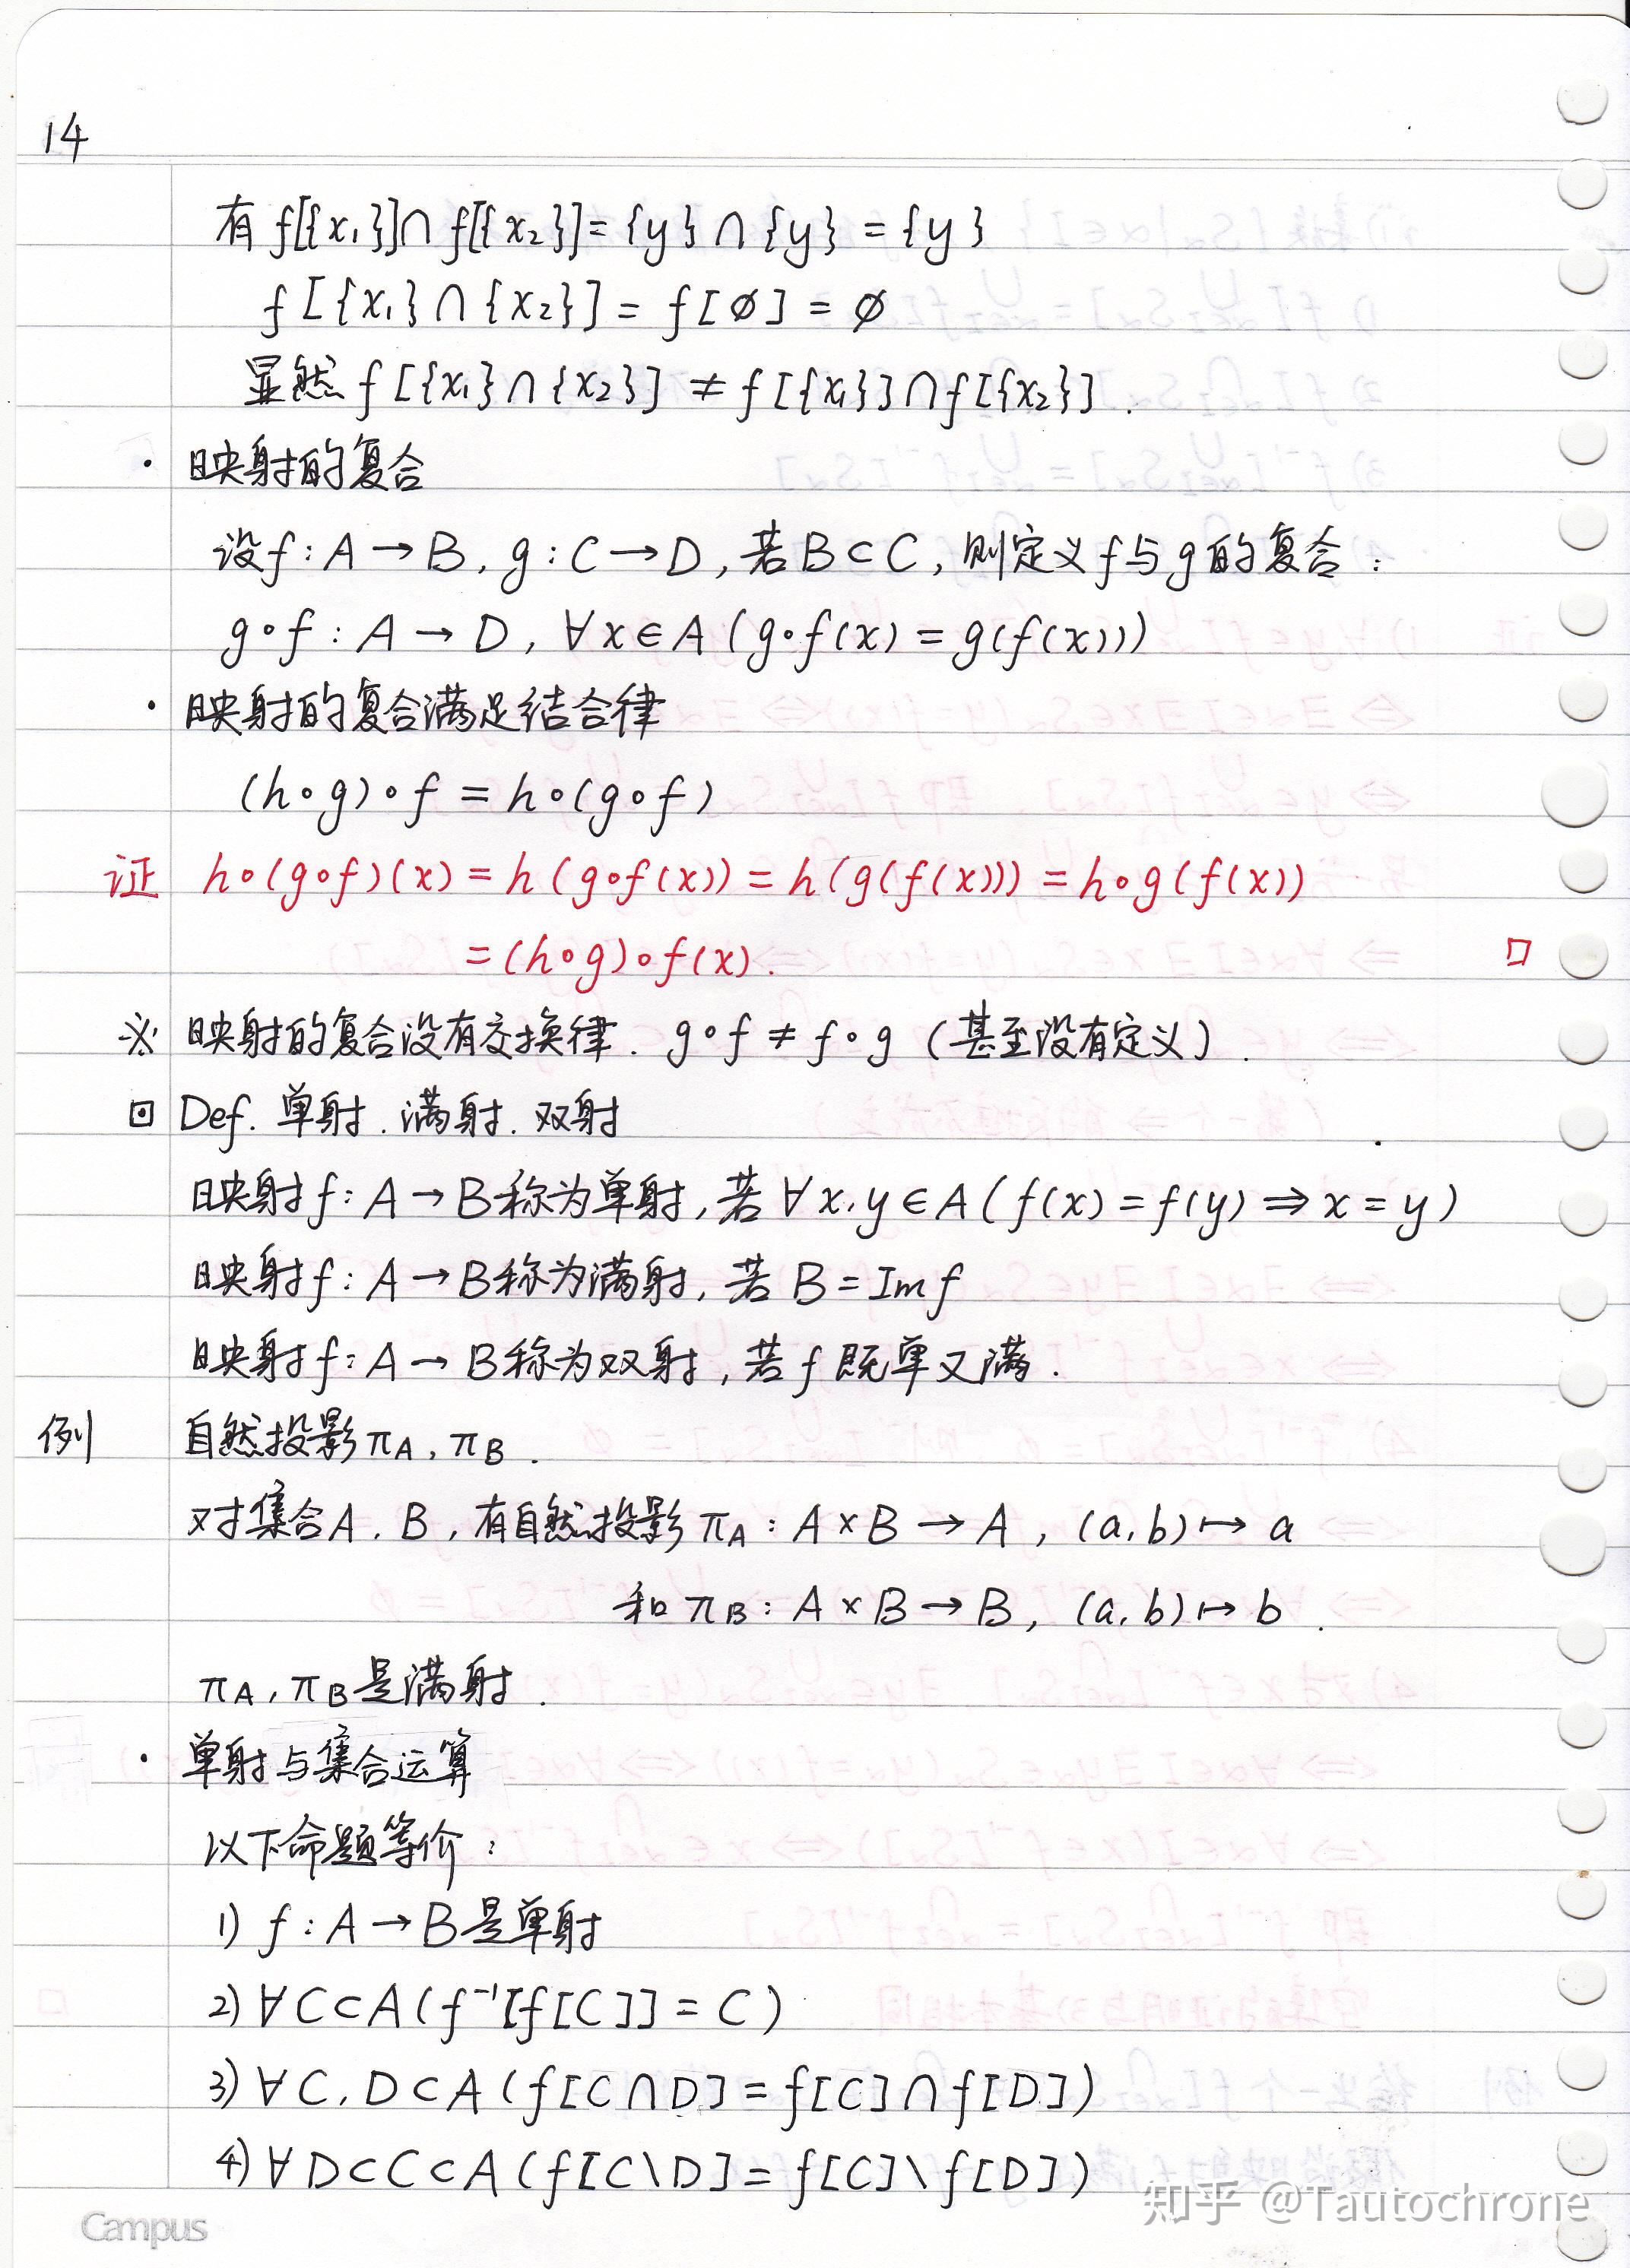 14
有 f[{x₁}]∩f[{x₂}]={y}∩{y}={y}
f[{x₁}∩{x₂}]=f[∅]=∅
显然 f[{x₁}∩{x₂}]≠f[{x₁}]∩f[{x₂}].
· 映射的复合
设f:A→B, g:C→D, 若B⊂C, 则定义f与g的复合:
g∘f:A→D, ∀x∈A(g∘f(x)=g(f(x)))
· 映射的复合满足结合律
(h∘g)∘f=h∘(g∘f)
证 h∘(g∘f)(x)=h(g∘f(x))=h(g(f(x)))=h∘g(f(x))
=(h∘g)∘f(x). □
※ 映射的复合没有交换律. g∘f≠f∘g (甚至没有定义).
⊡ Def. 单射. 满射. 双射
映射f:A→B称为单射, 若∀x,y∈A(f(x)=f(y)⇒x=y)
映射f:A→B称为满射, 若 B=Imf
映射f:A→B称为双射, 若f既单又满.
例 自然投影πA, πB.
对集合A, B, 有自然投影πA:A×B→A, (a,b)↦a
和πB:A×B→B, (a,b)↦b.
πA, πB是满射.
· 单射与集合运算
以下命题等价:
1) f:A→B是单射
2) ∀C⊂A(f⁻¹[f[C]]=C)
3) ∀C,D⊂A(f[C∩D]=f[C]∩f[D])
4) ∀D⊂C⊂A(f[C\D]=f[C]\f[D])
Campus
知乎 @Tautochrone